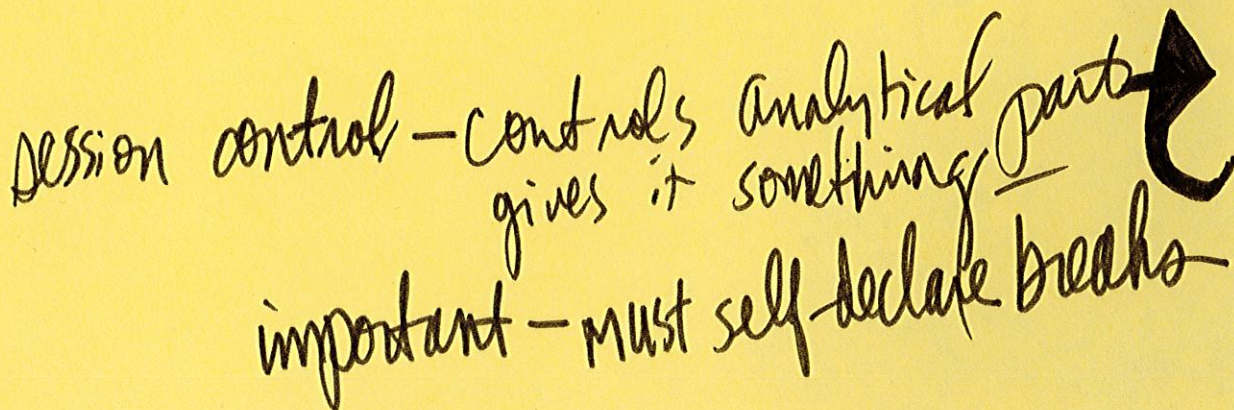 session control – controls analytical part
gives it something
important – must self-declare breaks